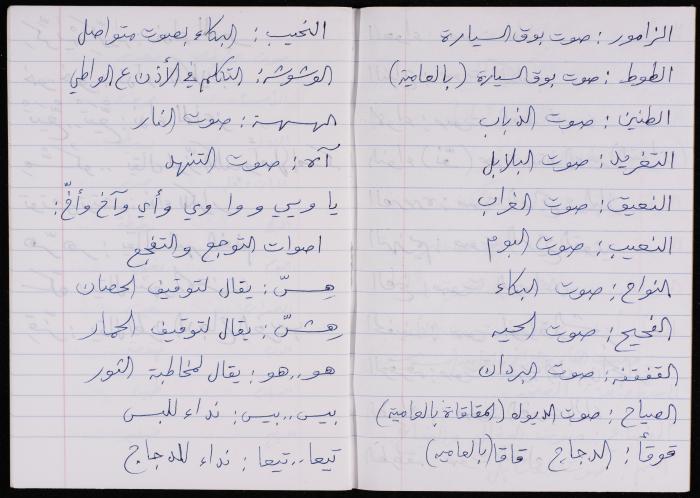 الزامور: صوت بوق السيارة
الطوط: صوت بوق السيارة (بالعامية)
الطنين: صوت الذباب
التغريد: صوت البلابل
النعيق: صوت الغراب
النعيب: صوت البوم
النواح: صوت البكاء
الفحيح: صوت الحيه
القفقفه: صوت البردان
الصياح: صوت الديوك (المقاقاة بالعامية)
قوقأ: الدجاج قاقا (بالعاميه)
النحيب: البكاء بصوت متواصل
الوشوشة: التكلم في الأذن ع الواطي
الهسهسة: صوت النار
آه: صوت التنهد
يا ويي و وا وي وأي وآخ وأخّ:
اصوات التوجع والتفجع
هِسّ: يقال لتوقيف الحصان
هِشّ: يقال لتوقيف الحمار
هو..هو: يقال لمخاطبة الثور
بيس..بيس: نداء للبس
تيعا..تيعا: نداء للدجاج